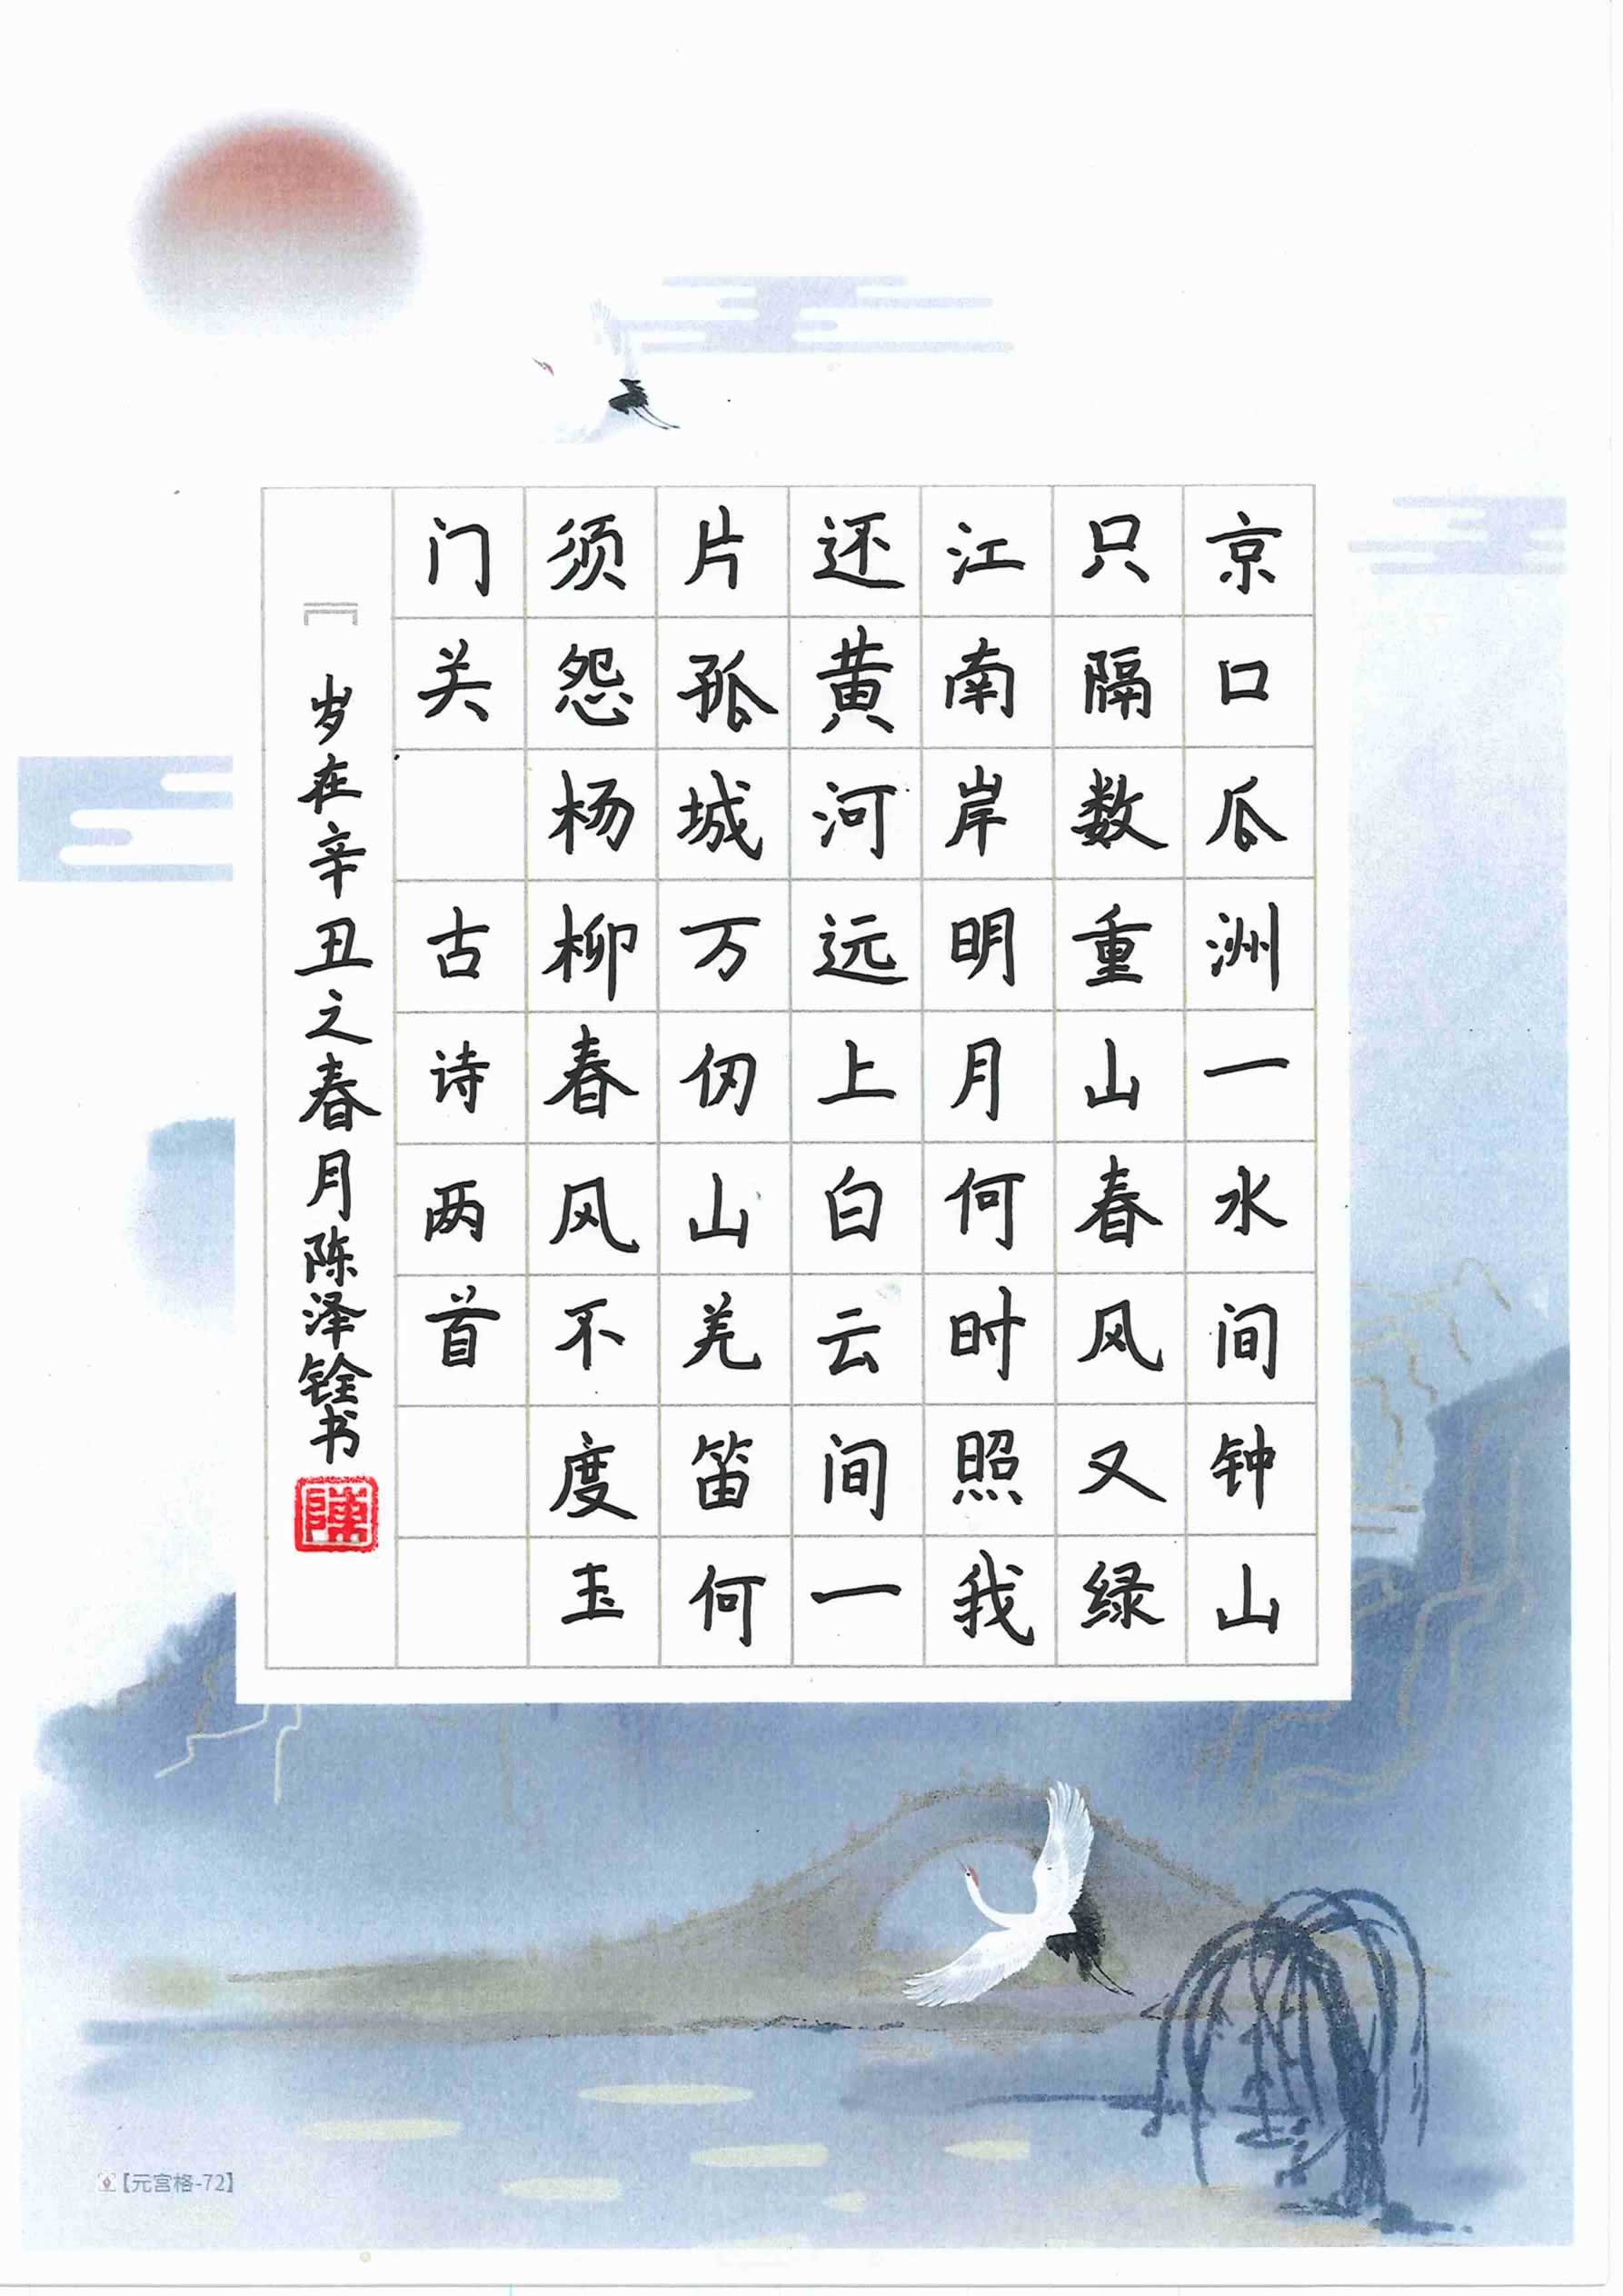 京口瓜洲一水间钟山
只隔数重山春风又绿
江南岸明月何时照我
还黄河远上白云间一
片孤城万仞山羌笛何
须怨杨柳春风不度玉
门关 古诗两首
岁在辛丑之春月陈泽铨书
陳
【元宫格-72】